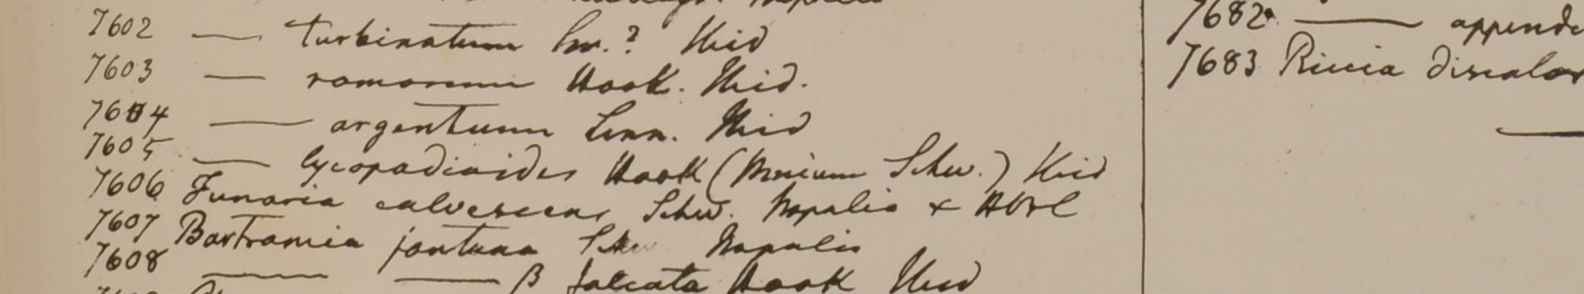 7602 — turbinatum Sw.? Ibid
7603 — ramosum Hook. Ibid.
7604 — argenteum Linn. Ibid
7605 — lycopodioides Hook (Mnium Schw.) Ibid
7606 Funaria calvescens Schw. Napalia & HBrl
7607 Bartramia fontana Napalia
7608 — — β falcata Hook Ibid
7682 — appendi
7683 Riccia discolor